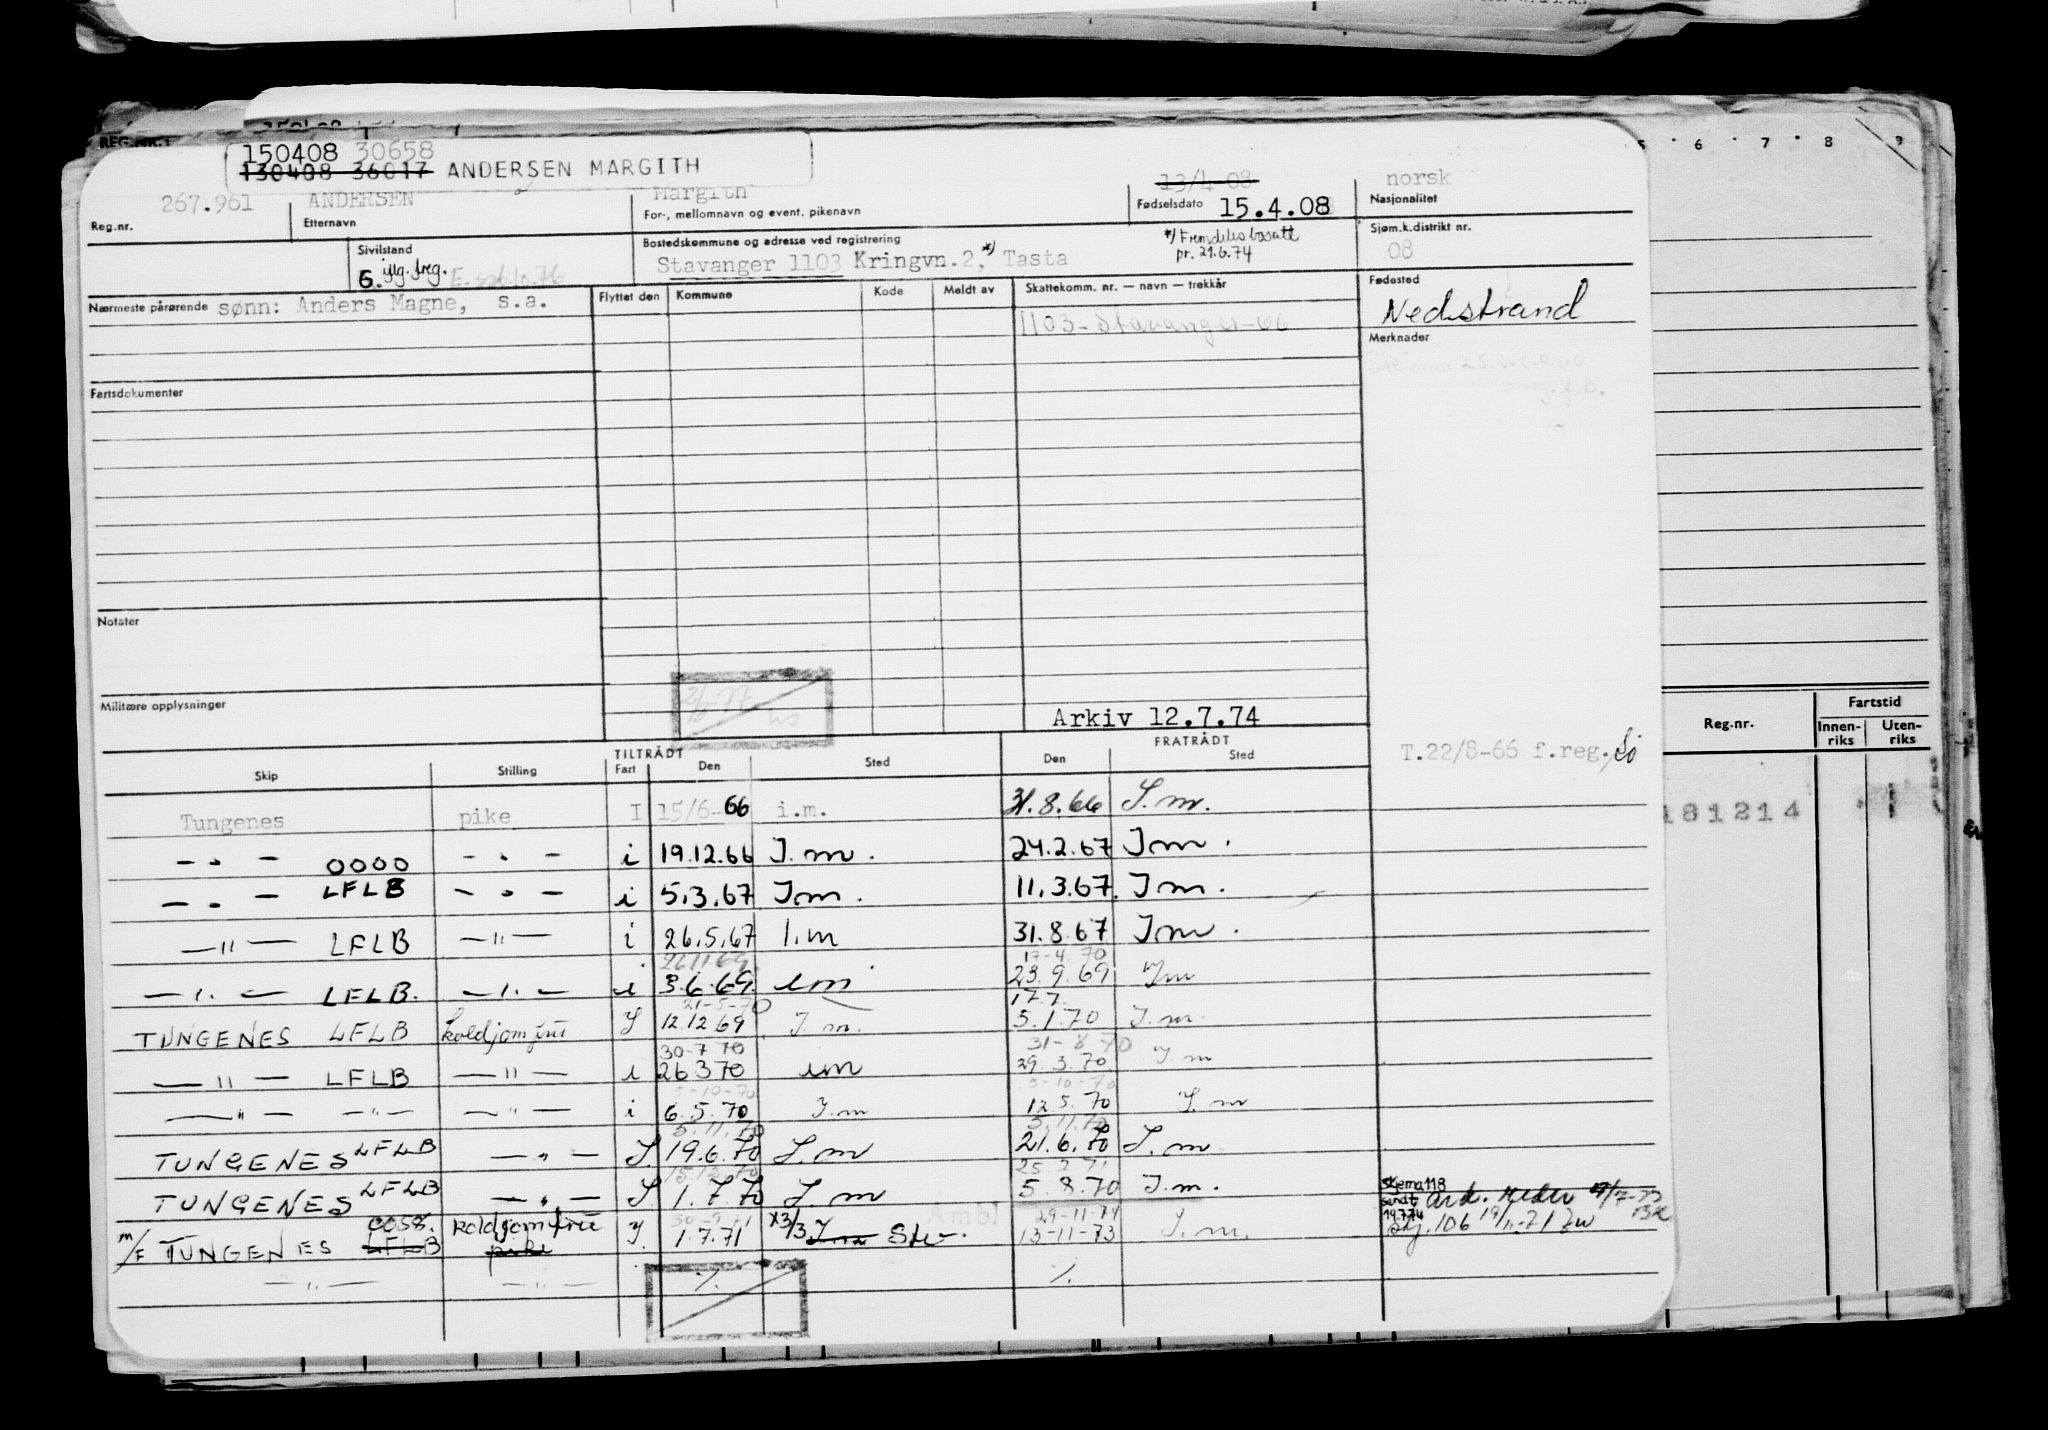 REG.NR.:
150408 30658
130408 36017 ANDERSEN MARGITH
267.961 ANDERSEN Margith 13/4-08 norsk
Reg.nr. Etternavn For-, mellomnavn og event. pikenavn Fødselsdato 15.4.08 Nasjonalitet
Sivilstand Bostedskommune og adresse ved registrering Sjøm.k.distrikt nr.
6. Stavanger 1103 Kringvn.2,*) Tasta *) Fremdeles bosatt pr. 21.6.74 08
Nærmeste pårørende sønn: Anders Magne, s.a. Flyttet den Kommune Kode Meldt av Skattekomm. nr. — navn — trekkår Fødested
1103-Stavanger-66 Nedstrand
Merknader
Fartsdokumenter
Notater
Militære opplysninger
Arkiv 12.7.74
TILTRÅDT FRATRÅDT
Skip Stilling Fart Den Sted Den Sted
T.22/8-66 f.reg.
Tungenes pike I 15/6-66 i.m. 31.8.66 I.m.
- . - 0000 - . - i 19.12.66 I.m. 24.2.67 Im.
- . - LFLB - . - i 5.3.67 Im. 11.3.67 Im.
—"— LFLB —"— i 26.5.67 I.m 31.8.67 Im.
26.11.69 17-4.70
—"— LFLB. —"— i 3.6.69 im 23.9.69 Im
21-5-70 17.7
TUNGENES LFLB koldjomfru I 12.12.69 I.m. 5.1.70 I.m.
30-7 70 31-8 70
—"— LFLB —"— i 26.3.70 im 29.3.70 I.m
5-10-70 5-10-70
—"— —"— —"— i 6.5.70 I.m 12.5.70 I.m
5.11.70 5.11.70
TUNGENES LFLB —"— I. 19.6.70 I.m 21.6.70 I.m
15.12.70 25 2 71
TUNGENES LFLB —"— I. 1.7.70 I.m 5.8.70 I.m.
29-11-71
m/F TUNGENES LFLB 0058. koldjomfru pike I. 1.7.71 x3/3 I.m Stv. 13-11-73 I.m.
—"— —"— ./. ./.
Skjema 118
sendt
19.7.74
Skj. 106
5 6 7 8 9
Reg.nr. Fartstid
Innen-riks Uten-riks
181214